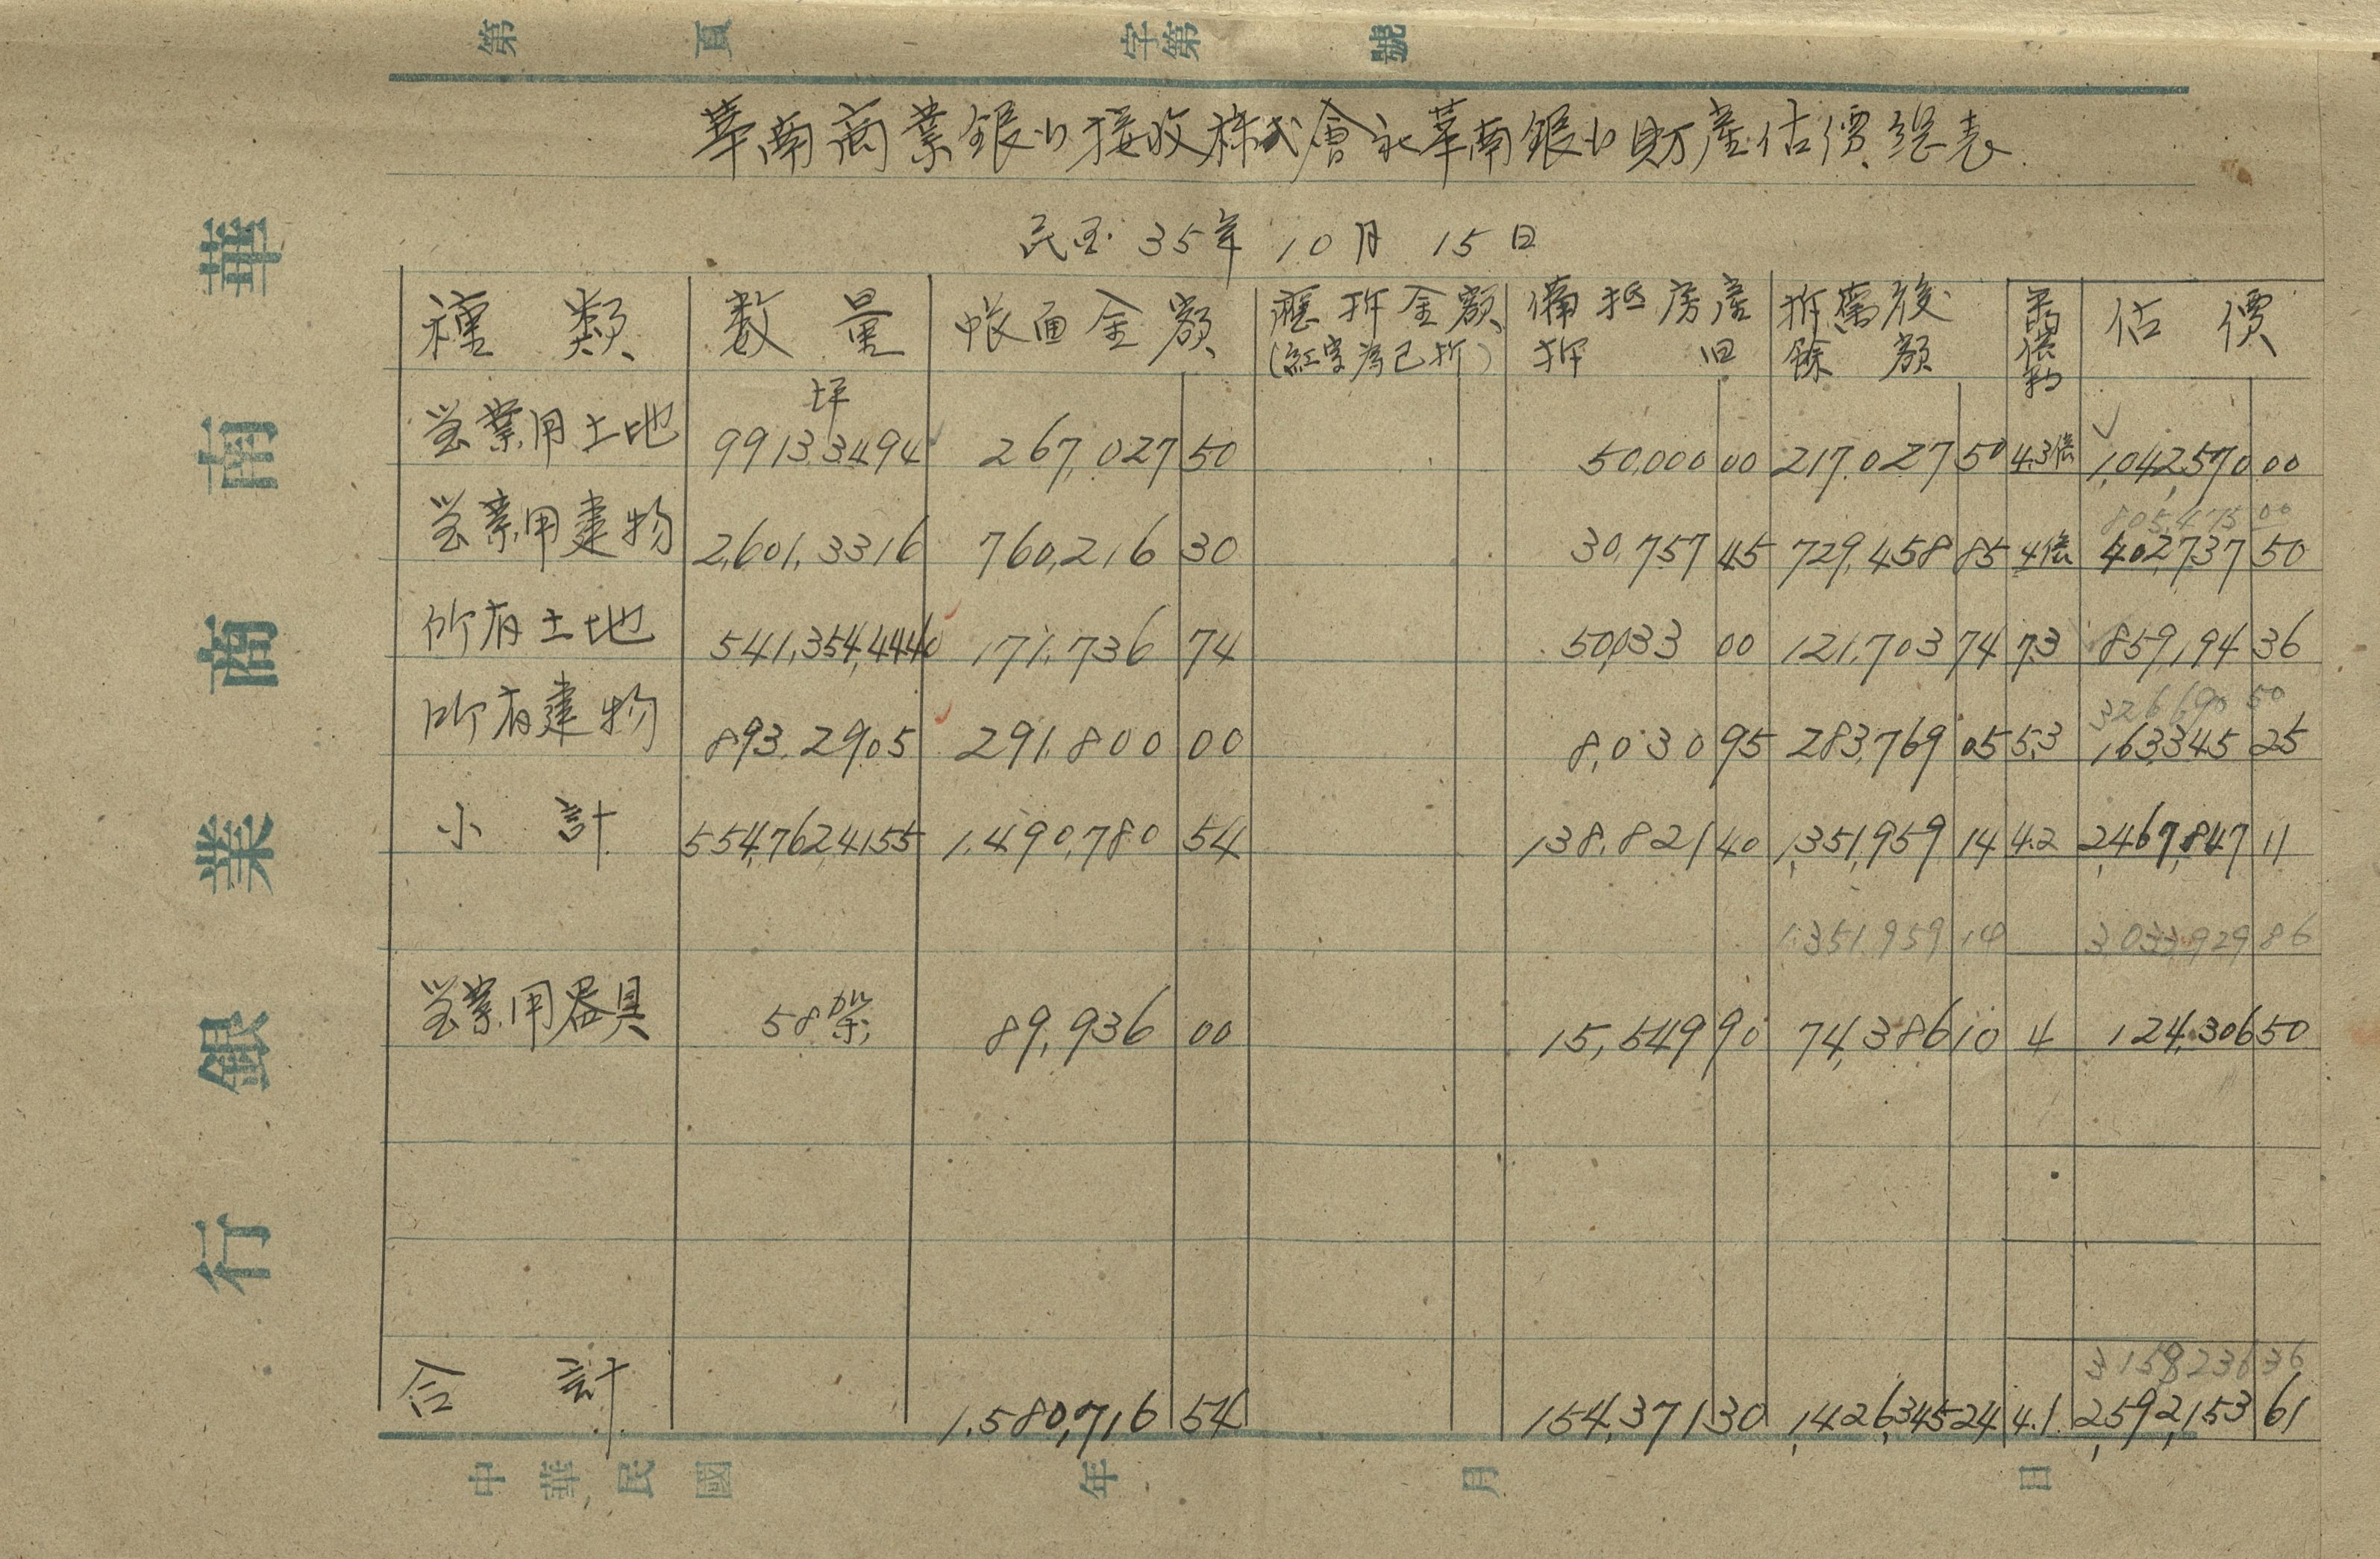 第 頁 字第 號
華南商業銀行接收株式會社華南銀行財產估價總表
民国 35年 10月 15日
種類 数量 帳面金額 應折金額 備抵房産 折舊後 估價
(紅字為已折) 折旧 餘額
坪
営業用土地 9913.3494 267,027 50 50,000 00 217,027 50 4.3倍 1,042,570 00
805,475 00
営業用建物 2,601.3316 760,216 30 30,757 45 729,458 85 4倍 402,737 50
所有土地 541,354.4440 171,736 74 50,033 00 121,703 74 7.3 859,194 36
326,690 50
所有建物 893.2905 291,800 00 8,030 95 283,769 05 5.3 163,345 25
小計 554,762.4155 1,490,780 54 138,821 40 1,351,959 14 4.2 2,467,847 11
1,351,959 14 3,033,929 86
営業用器具 58架 89,936 00 15,549 90 74,386 10 4 124,306 50
3,158,236 36
合計 1,580,716 54 154,371 30 1,426,345 24 4.1 2,592,153 61
中華民國 年 月 日
華南商業銀行